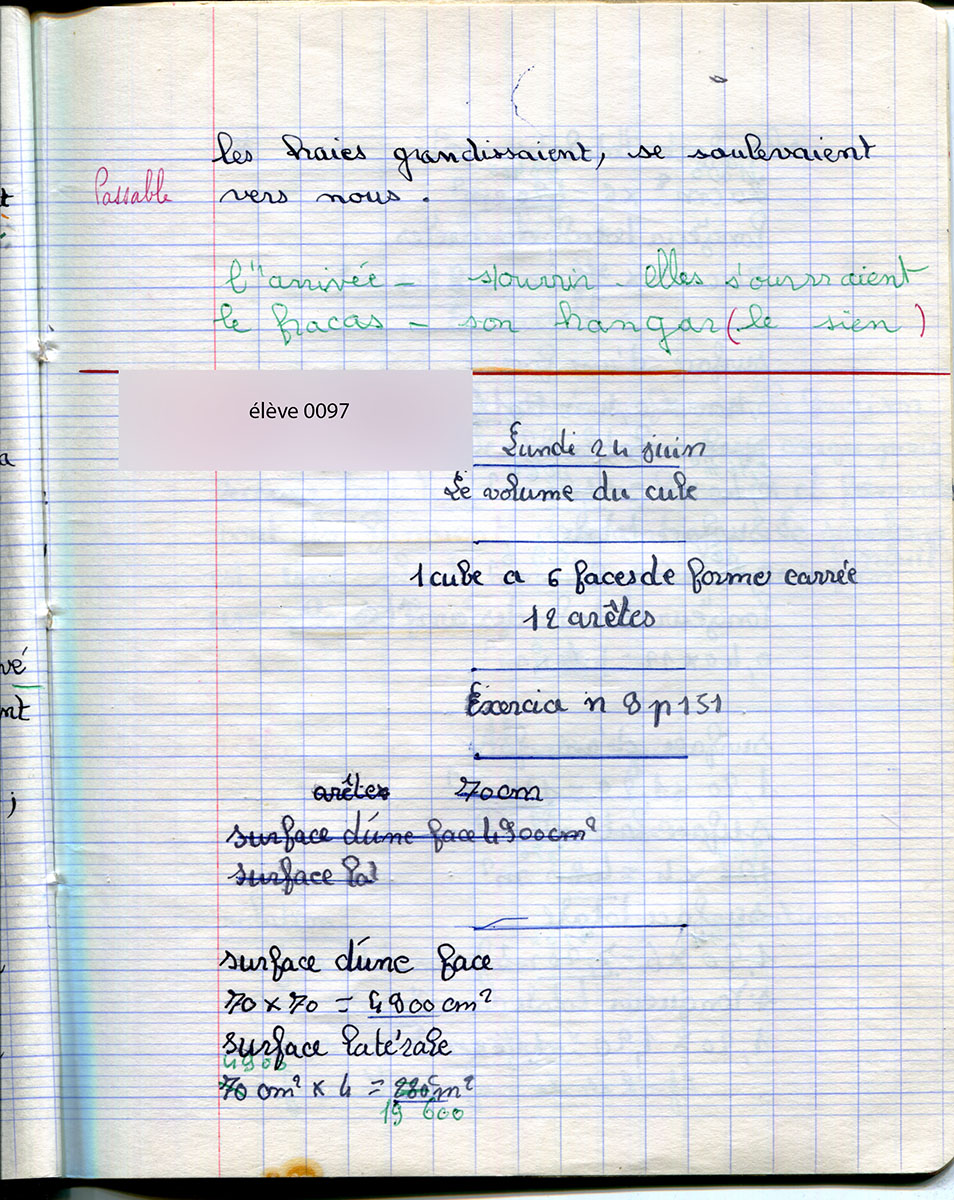 les haies grandissaient, se soulevaient
Passable
vers nous.
l'arrivée - s'ouvrir - elles s'ouvraient
le fracas - son hangar (le sien)
élève 0097
Lundi 24 juin
Le volume du cube
1 cube a 6 faces de forme carrée
12 arêtes
Exercice n 8 p 151
arêtes 70 cm
surface d'une face 4900 cm²
surface lat
surface d'une face
70 x 70 = 4900 cm²
surface latérale
4900
70 cm² x 4 = 280 cm²
19 600
vé
nt
j
a
t